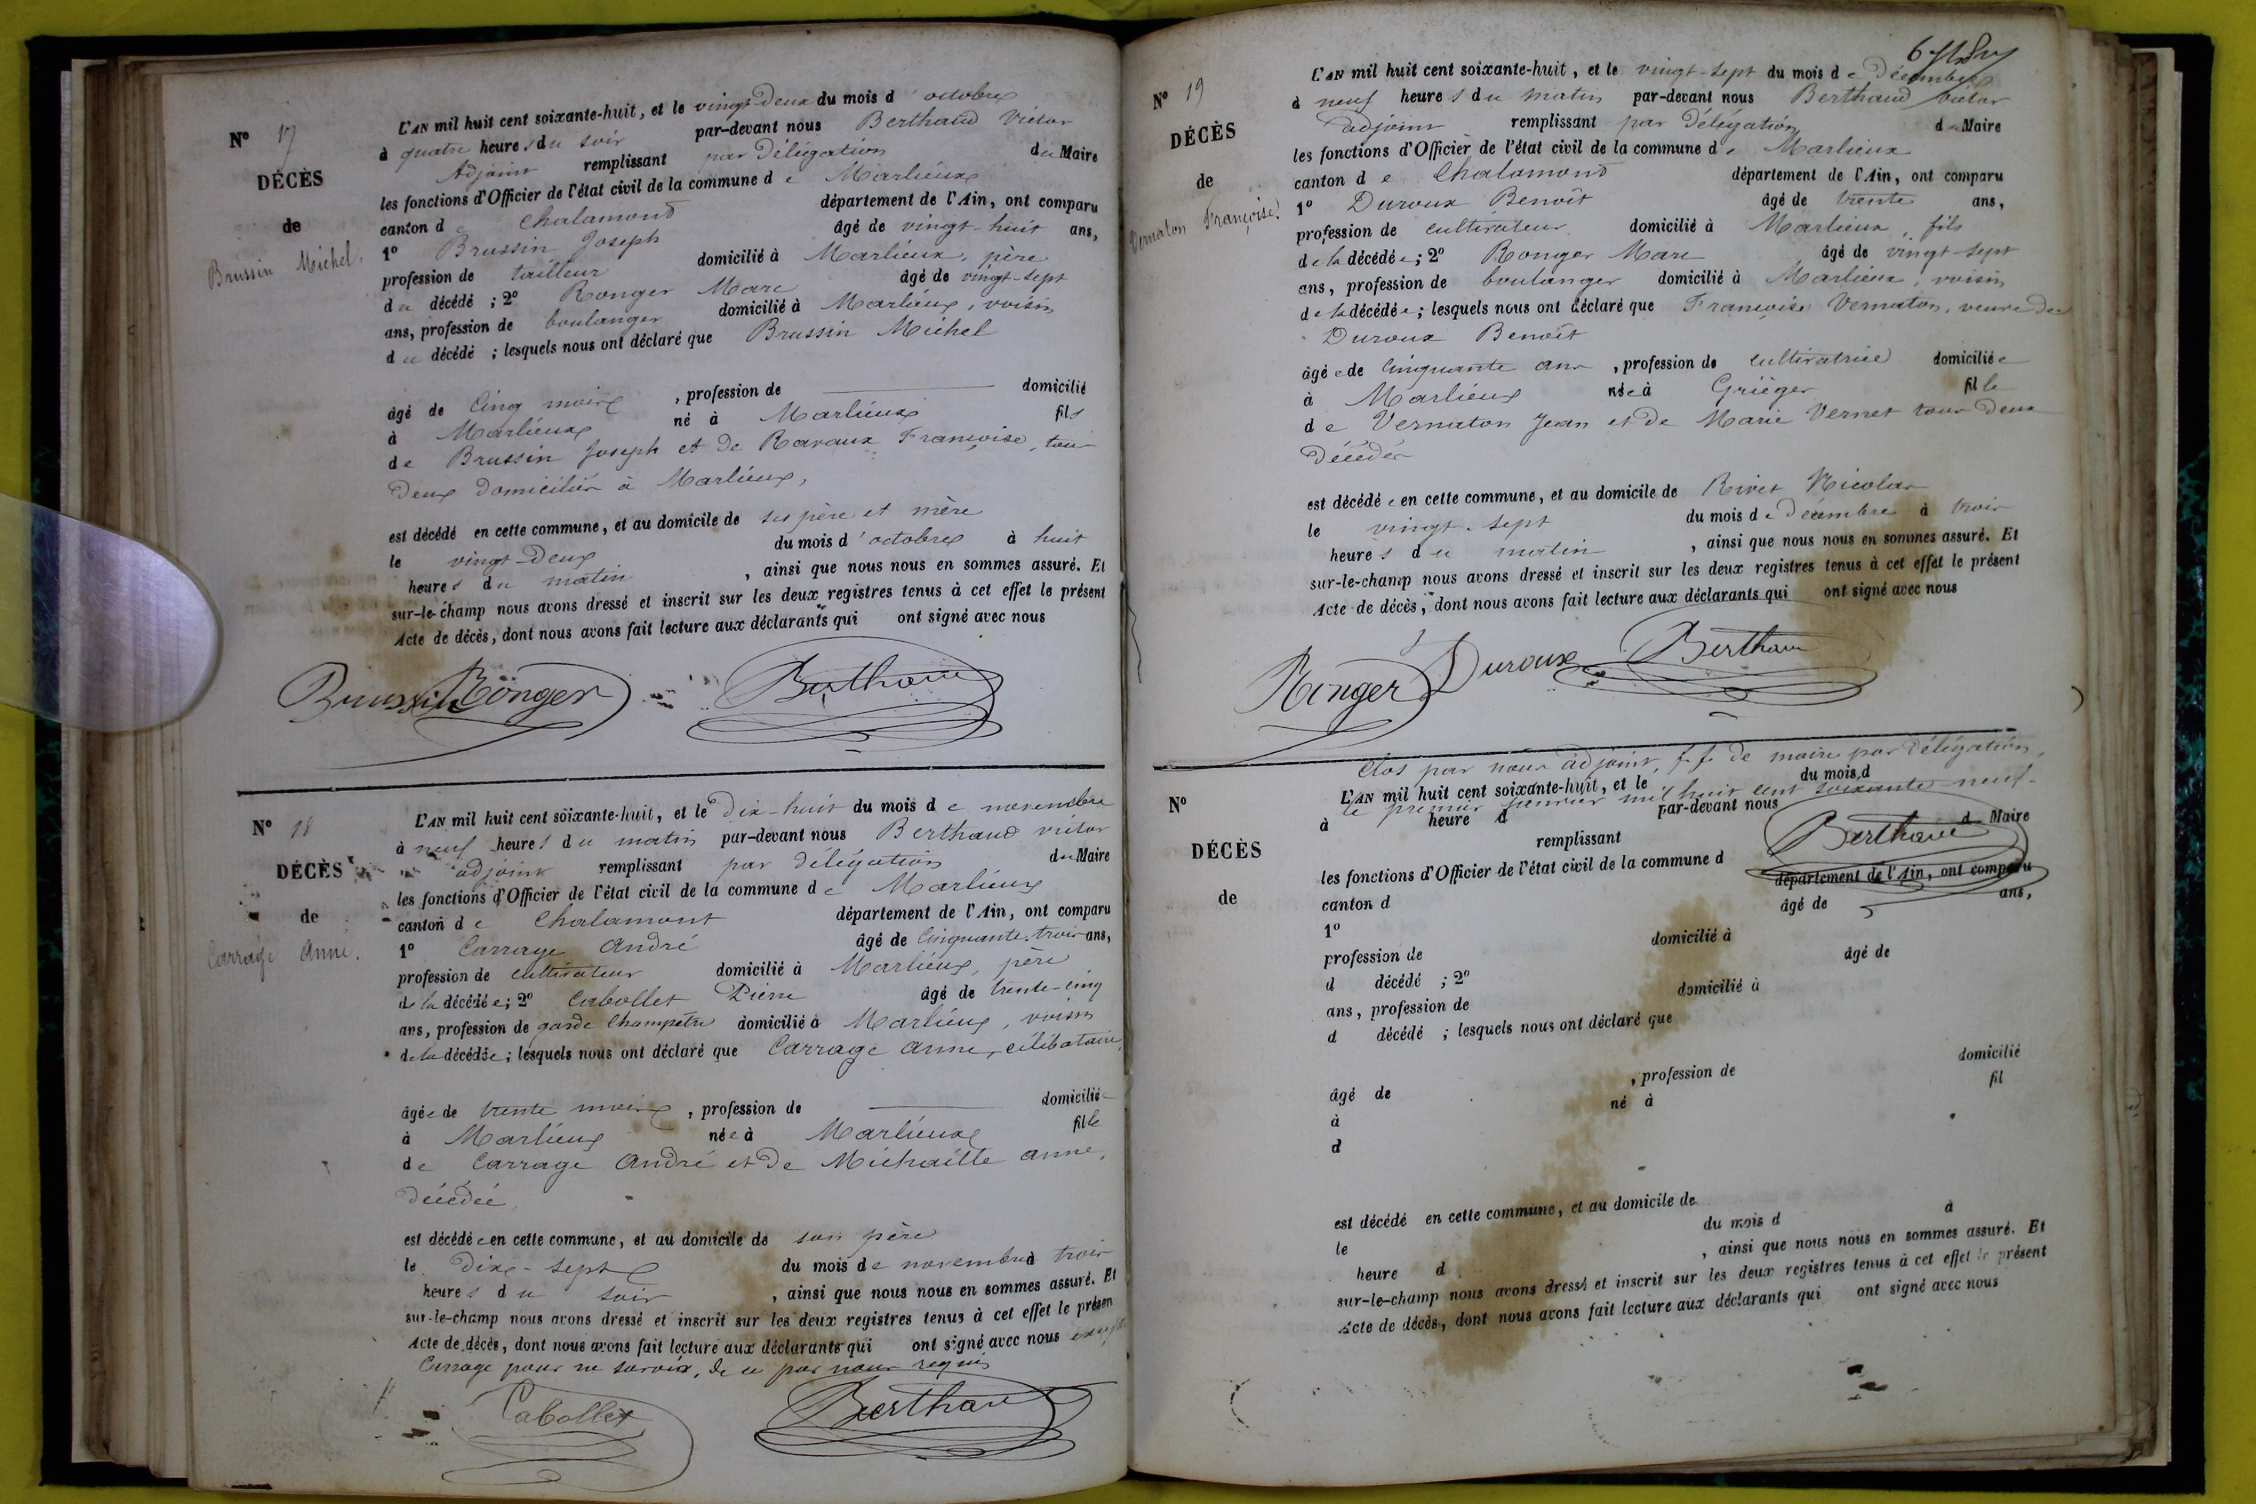 N° 17
DÉCÈS
de
Brussin Michel.
L'AN mil huit cent soixante-huit, et le vingt-deux du mois d'octobre
à quatre heures du soir par-devant nous Berthaud Victor
Adjoint remplissant par délégation du Maire
les fonctions d'Officier de l'état civil de la commune de Marlieux
canton de Chalamont département de l'Ain, ont comparu
1° Brussin Joseph âgé de vingt-huit ans,
profession de tailleur domicilié à Marlieux, père
du décédé ; 2° Ronger Marc âgé de vingt-sept
ans, profession de boulanger domicilié à Marlieux, voisin
du décédé ; lesquels nous ont déclaré que Brussin Michel
âgé de cinq mois , profession de domicilié
à Marlieux né à Marlieux fils
de Brussin Joseph et de Ravaux Françoise, tous
deux domiciliés à Marlieux,
est décédé en cette commune, et au domicile de ses père et mère
le vingt-deux du mois d'octobre à huit
heures du matin , ainsi que nous nous en sommes assuré. Et
sur-le-champ nous avons dressé et inscrit sur les deux registres tenus à cet effet le présent
Acte de décès, dont nous avons fait lecture aux déclarants qui ont signé avec nous
Brussin Ronger Berthaud
N° 18
DÉCÈS
de
Carrage Anne.
L'AN mil huit cent soixante-huit, et le dix-huit du mois de novembre
à neuf heures du matin par-devant nous Berthaud victor
adjoint remplissant par délégation du Maire
les fonctions d'Officier de l'état civil de la commune de Marlieux
canton de Chalamont département de l'Ain, ont comparu
1° Carrage André âgé de cinquante-trois ans,
profession de cultivateur domicilié à Marlieux, père
de la décédée ; 2° Cabollet Pierre âgé de trente-cinq
ans, profession de garde champêtre domicilié à Marlieux, voisin
de la décédée ; lesquels nous ont déclaré que Carrage Anne, célibataire,
âgée de trente mois , profession de domicilié
à Marlieux née à Marlieux fille
de Carrage André et de Michaille Anne,
décédée
est décédée en cette commune, et au domicile de son père
le dix-sept du mois de novembre à trois
heures du soir , ainsi que nous nous en sommes assuré. Et
sur-le-champ nous avons dressé et inscrit sur les deux registres tenus à cet effet le présen
Acte de décès, dont nous avons fait lecture aux déclarants qui ont signé avec nous excepté
Carrage pour ne savoir, de ce par nous requis
Cabollet Berthaud
N° 19
DÉCÈS
de
Vernaton Françoise.
L'AN mil huit cent soixante-huit, et le vingt-sept du mois de Décembre
à neuf heures du matin par-devant nous Berthaud victor
adjoint remplissant par délégation du Maire
les fonctions d'Officier de l'état civil de la commune de Marlieux
canton de Chalamont département de l'Ain, ont comparu
1° Duroux Benoît âgé de trente ans,
profession de cultivateur domicilié à Marlieux, fils
de la décédée ; 2° Ronger Marc âgé de vingt-sept
ans, profession de boulanger domicilié à Marlieux, voisin
de la décédée ; lesquels nous ont déclaré que Françoise Vernaton, veuve de
Duroux Benoît
âgée de cinquante ans , profession de cultivatrice domiciliée
à Marlieux née à Grièges fille
de Vernaton Jean et de Marie Vernet tous deux
décédés
est décédée en cette commune, et au domicile de Rivet Nicolas
le vingt-sept du mois de Décembre à trois
heures du matin , ainsi que nous nous en sommes assuré. Et
sur-le-champ nous avons dressé et inscrit sur les deux registres tenus à cet effet le présent
Acte de décès, dont nous avons fait lecture aux déclarants qui ont signé avec nous
Ronger Duroux Berthaud
Clos par nous adjoint, f.f. de maire par délégation,
le premier janvier mil huit cent soixante neuf.
Berthaud
N°
DÉCÈS
de
L'AN mil huit cent soixante-huit, et le du mois d
à heure d par-devant nous
remplissant d Maire
les fonctions d'Officier de l'état civil de la commune d
canton d département de l'Ain, ont comparu
1° âgé de ans,
profession de domicilié à
d décédé ; 2° âgé de
ans, profession de domicilié à
d décédé ; lesquels nous ont déclaré que
âgé de , profession de domicilié
à né à fil
d
est décédé en cette commune, et au domicile de
le du mois d à
heure d , ainsi que nous nous en sommes assuré. Et
sur-le-champ nous avons dressé et inscrit sur les deux registres tenus à cet effet le présent
Acte de décès, dont nous avons fait lecture aux déclarants qui ont signé avec nous